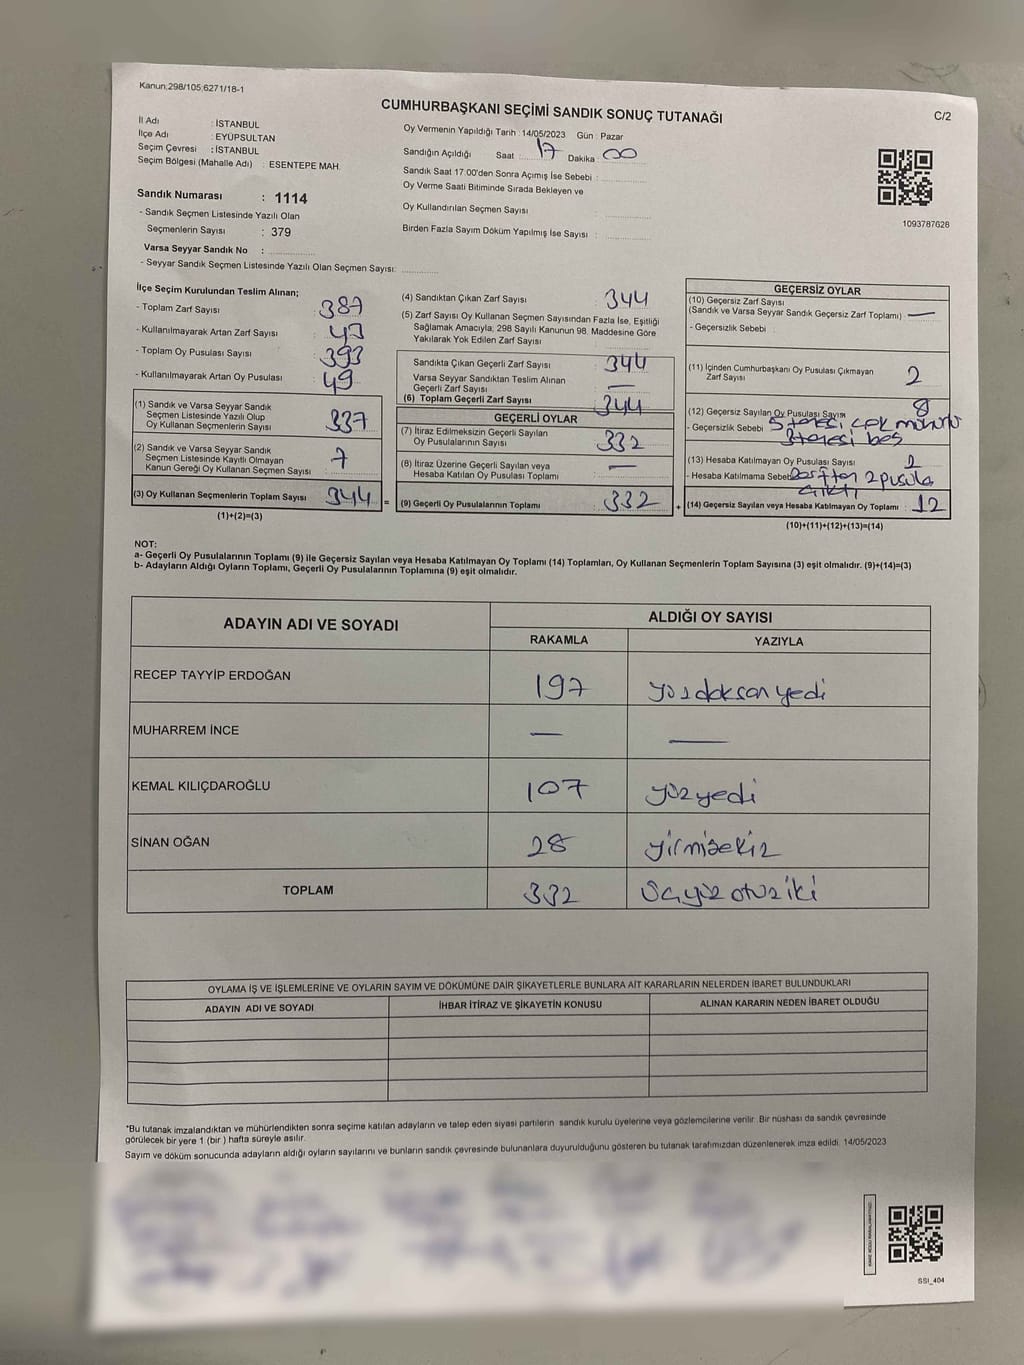 Kanun;298/105;6271/18-1
CUMHURBAŞKANI SEÇİMİ SANDIK SONUÇ TUTANAĞI
C/2
İl Adı : İSTANBUL
İlçe Adı : EYÜPSULTAN
Seçim Çevresi : İSTANBUL
Seçim Bölgesi (Mahalle Adı) : ESENTEPE MAH.
Oy Vermenin Yapıldığı Tarih : 14/05/2023 Gün : Pazar
Sandığın Açıldığı Saat : 17 Dakika : 00
Sandık Saat 17:00'den Sonra Açımış İse Sebebi :
Oy Verme Saati Bitiminde Sırada Bekleyen ve
Oy Kullandırılan Seçmen Sayısı :
Birden Fazla Sayım Döküm Yapılmış İse Sayısı :
1093787628
Sandık Numarası : 1114
- Sandık Seçmen Listesinde Yazılı Olan
Seçmenlerin Sayısı : 379
Varsa Seyyar Sandık No :
- Seyyar Sandık Seçmen Listesinde Yazılı Olan Seçmen Sayısı:
İlçe Seçim Kurulundan Teslim Alınan;
- Toplam Zarf Sayısı : 387
- Kullanılmayarak Artan Zarf Sayısı : 43
- Toplam Oy Pusulası Sayısı : 393
- Kullanılmayarak Artan Oy Pusulası : 49
(1) Sandık ve Varsa Seyyar Sandık
Seçmen Listesinde Yazılı Olup
Oy Kullanan Seçmenlerin Sayısı : 337
(2) Sandık ve Varsa Seyyar Sandık
Seçmen Listesinde Kayıtlı Olmayan
Kanun Gereği Oy Kullanan Seçmen Sayısı : 7
(3) Oy Kullanan Seçmenlerin Toplam Sayısı : 344 =
(1)+(2)=(3)
(4) Sandıktan Çıkan Zarf Sayısı : 344
(5) Zarf Sayısı Oy Kullanan Seçmen Sayısından Fazla İse, Eşitliği
Sağlamak Amacıyla; 298 Sayılı Kanunun 98. Maddesine Göre
Yakılarak Yok Edilen Zarf Sayısı :
Sandıkta Çıkan Geçerli Zarf Sayısı : 344
Varsa Seyyar Sandıktan Teslim Alınan
Geçerli Zarf Sayısı : —
(6) Toplam Geçerli Zarf Sayısı : 344
GEÇERLİ OYLAR
(7) İtiraz Edilmeksizin Geçerli Sayılan
Oy Pusulalarının Sayısı : 332
(8) İtiraz Üzerine Geçerli Sayılan veya
Hesaba Katılan Oy Pusulası Toplamı : —
(9) Geçerli Oy Pusulalarının Toplamı : 332 +
GEÇERSİZ OYLAR
(10) Geçersiz Zarf Sayısı
(Sandık ve Varsa Seyyar Sandık Geçersiz Zarf Toplamı) : —
- Geçersizlik Sebebi :
(11) İçinden Cumhurbaşkanı Oy Pusulası Çıkmayan
Zarf Sayısı : 2
(12) Geçersiz Sayılan Oy Pusulası Sayısı : 8
- Geçersizlik Sebebi : 5 tanesi çok mühürlü
3 tanesi boş
(13) Hesaba Katılmayan Oy Pusulası Sayısı : 2
- Hesaba Katılmama Sebebi : zarftan 2 pusula
çıktı
(14) Geçersiz Sayılan veya Hesaba Katılmayan Oy Toplamı : 12
(10)+(11)+(12)+(13)=(14)
NOT:
a- Geçerli Oy Pusulalarının Toplamı (9) ile Geçersiz Sayılan veya Hesaba Katılmayan Oy Toplamı (14) Toplamları, Oy Kullanan Seçmenlerin Toplam Sayısına (3) eşit olmalıdır. (9)+(14)=(3)
b- Adayların Aldığı Oyların Toplamı, Geçerli Oy Pusulalarının Toplamına (9) eşit olmalıdır.
ADAYIN ADI VE SOYADI
ALDIĞI OY SAYISI
RAKAMLA YAZIYLA
RECEP TAYYİP ERDOĞAN 197 yüzdoksan yedi
MUHARREM İNCE — —
KEMAL KILIÇDAROĞLU 107 yüzyedi
SİNAN OĞAN 28 yirmisekiz
TOPLAM 332 üçyüz otuz iki
OYLAMA İŞ VE İŞLEMLERİNE VE OYLARIN SAYIM VE DÖKÜMÜNE DAİR ŞİKAYETLERLE BUNLARA AİT KARARLARIN NELERDEN İBARET BULUNDUKLARI
ADAYIN ADI VE SOYADI İHBAR İTİRAZ VE ŞİKAYETİN KONUSU ALINAN KARARIN NEDEN İBARET OLDUĞU
*Bu tutanak imzalandıktan ve mühürlendikten sonra seçime katılan adayların ve talep eden siyasi partilerin sandık kurulu üyelerine veya gözlemcilerine verilir. Bir nüshası da sandık çevresinde
görülecek bir yere 1 (bir ) hafta süreyle asılır.
Sayım ve döküm sonucunda adayların aldığı oyların sayılarını ve bunların sandık çevresinde bulunanlara duyurulduğunu gösteren bu tutanak tarafımızdan düzenlenerek imza edildi. 14/05/2023
SSI_404